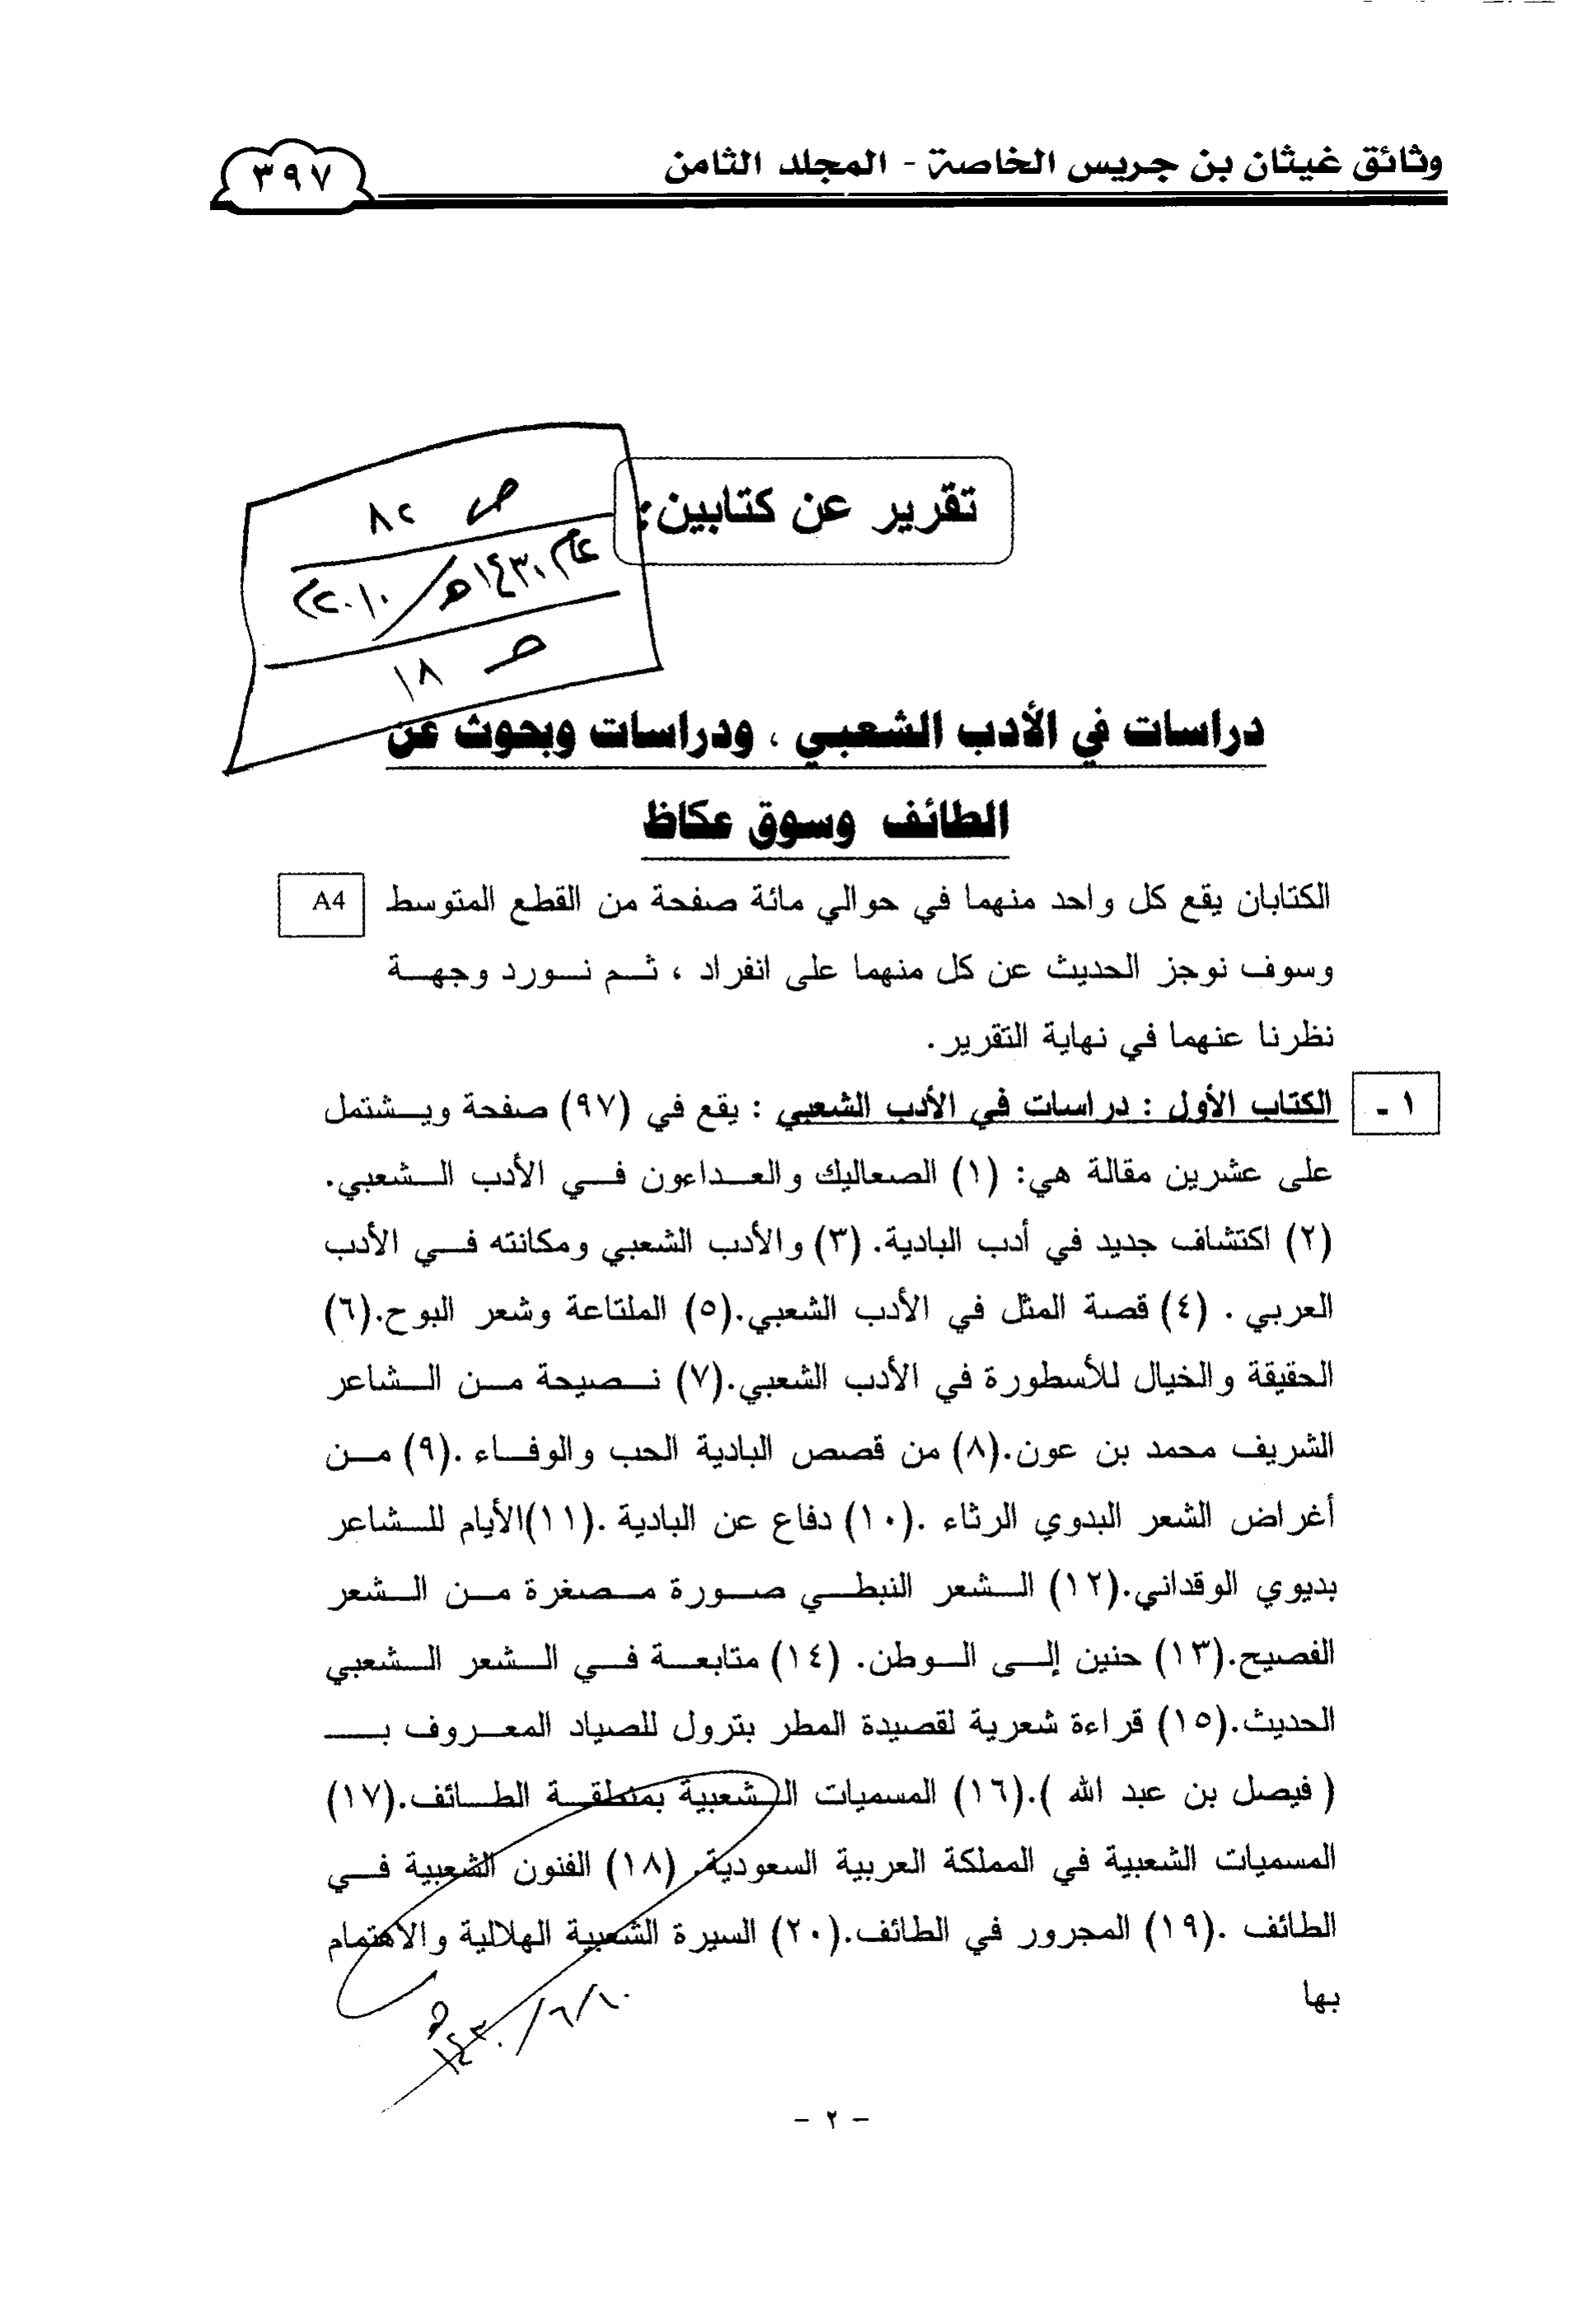 وثائق غيثان بن جريس الخاصة - المجلد الثامن
٣٩٧
ص ٨٢
عام ١٤٣٠هـ/٢٠١٠م
ص ١٨
تقرير عن كتابين:
دراسات في الأدب الشعبي ، ودراسات وبحوث عن
الطائف وسوق عكاظ
الكتابان يقع كل واحد منهما في حوالي مائة صفحة من القطع المتوسط A4
وسوف نوجز الحديث عن كل منهما على انفراد ، ثم نورد وجهة
نظرنا عنهما في نهاية التقرير.
١ - الكتاب الأول : دراسات في الأدب الشعبي : يقع في (٩٧) صفحة ويشتمل
على عشرين مقالة هي: (١) الصعاليك والعداءون في الأدب الشعبي.
(٢) اكتشاف جديد في أدب البادية. (٣) والأدب الشعبي ومكانته في الأدب
العربي . (٤) قصة المثل في الأدب الشعبي.(٥) الملتاعة وشعر البوح.(٦)
الحقيقة والخيال للأسطورة في الأدب الشعبي.(٧) نصيحة من الشاعر
الشريف محمد بن عون.(٨) من قصص البادية الحب والوفاء .(٩) من
أغراض الشعر البدوي الرثاء .(١٠) دفاع عن البادية .(١١)الأيام للشاعر
بديوي الوقداني.(١٢) الشعر النبطي صورة مصغرة من الشعر
الفصيح.(١٣) حنين إلى الوطن. (١٤) متابعة في الشعر الشعبي
الحديث.(١٥) قراءة شعرية لقصيدة المطر بترول للصياد المعروف بـ
( فيصل بن عبد الله ).(١٦) المسميات الشعبية بمنطقة الطائف.(١٧)
المسميات الشعبية في المملكة العربية السعودية. (١٨) الفنون الشعبية في
الطائف .(١٩) المجرور في الطائف.(٢٠) السيرة الشعبية الهلالية والاهتمام
بها
١٠/٦/١٤٣٠هـ
- ٢ -